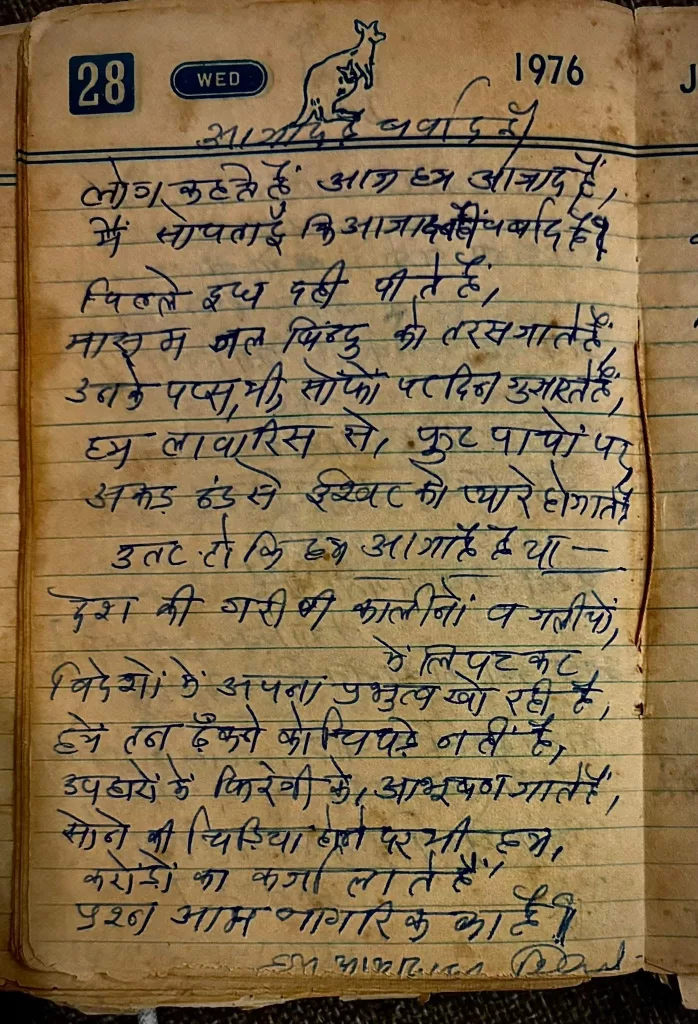 28 WED 1976 J
आजाद है बर्बाद है।
लोग कहते हैं आज हम आजाद हैं,
मैं सोचता हूँ कि आजाद नहीं बर्बाद हैं?
पिल्ले दूध दही पीते हैं,
मासूम जल बिन्दु को तरस जाते हैं,
उनके पप्स भी, सोफों पर दिन गुजारते हैं,
हम लावारिस से, फुट पाथों पर
अकड़ ठंड से ईश्वर को प्यारे हो जाते हैं
उत्तर दो कि हम आजाद है या —
देश की गरीबी कालीनों व गलीचों,
में लिपट कर
विदेशों में अपना प्रभुत्व खो रही है,
हमें तन ढँकने को चिथड़े नहीं है,
उपहारों में फिरंगी के, आभूषण जाते हैं,
सोने की चिड़िया होने पर भी हम,
करोड़ों का कर्जा लाते हैं,
प्रश्न आम नागरिक का है?